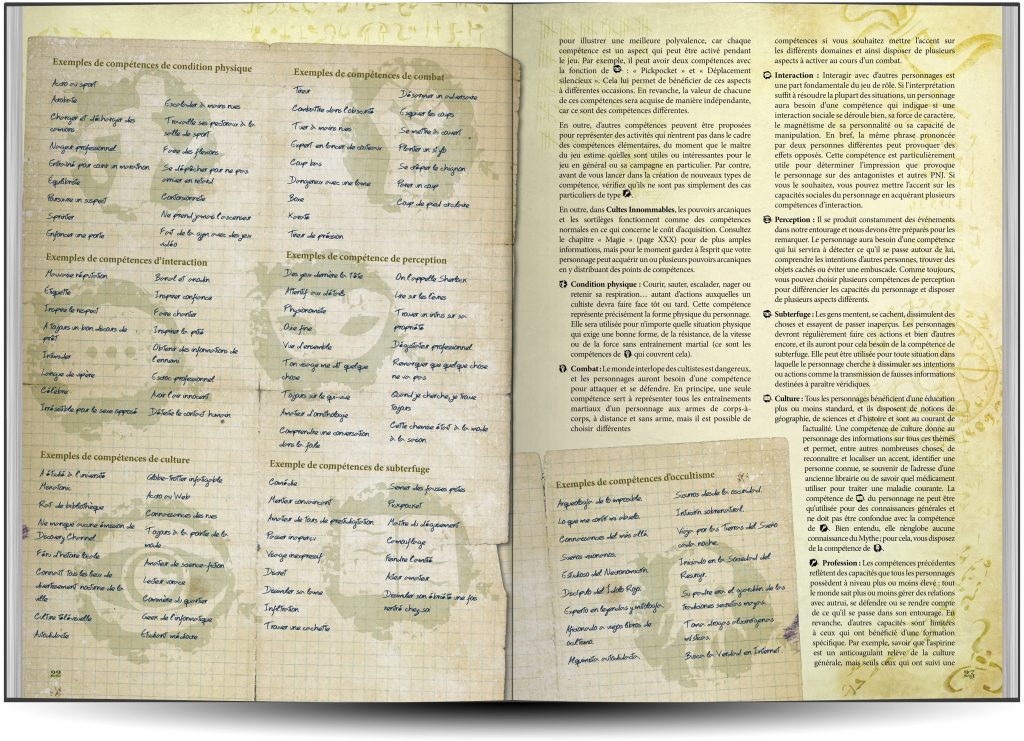 Exemples de compétences de condition physique
Accro au sport
Acrobate
Charger et décharger des camions
Nageur professionnel
Entraîné pour courir un marathon
Équilibriste
Poursuivre un suspect
Sprinter
Enfoncer une porte
Escalader à mains nues
Travaille ses pectoraux à la salle de sport
Faire des flexions
Se dépêcher pour ne pas arriver en retard
Contorsionniste
Ne prend jamais l'ascenseur
Fait de la gym avec des jeux vidéo
Exemples de compétences de combat
Tireur
Combattre dans l'obscurité
Tuer à mains nues
Expert en lancer de couteaux
Coup bas
Dangereux avec une lame
Boxe
Karaté
Tireur de précision
Désarmer un adversaire
Esquiver les coups
Se mettre à couvert
Planter un stylo
Se crêper le chignon
Parer un coup
Coup de pied circulaire
Exemples de compétences d'interaction
Mauvaise réputation
Étiquette
Inspire le respect
A toujours un bon discours de prêt
Intimider
Langue de vipère
Célébrité
Irrésistible pour le sexe opposé
Banal et anodin
Inspirer confiance
Faire chanter
Inspirer la pitié
Obtenir des informations de l'ennemi
Escroc professionnel
Avoir l'air innocent
Déteste le contact humain
Exemples de compétence de perception
Des yeux derrière la tête
Attentif aux détails
Physionomiste
Ouïe fine
Vue d'ensemble
Ton visage me dit quelque chose
Toujours sur le qui-vive
Amateur d'ornithologie
Comprendre une conversation dans la foule
On l'appelle Sherlock
Lire sur les lèvres
Trouver un intrus sur sa propriété
Dégustateur professionnel
Remarquer que quelque chose ne va pas
Quand je cherche, je trouve toujours
Cette chemise était à la mode à la saison
Exemples de compétences de culture
A étudié à l'université
Mélomane
Rat de bibliothèque
Ne manque aucune émission de Discovery Channel
Féru d'histoire locale
Connaît tous les lieux de divertissement nocturne de la ville
Culture télévisuelle
Autodidacte
Globe-trotter infatigable
Accro au Web
Connaissances des rues
Toujours à la pointe de la mode
Amateur de science-fiction
Lecteur vorace
Commère du quartier
Geek de l'informatique
Étudiant médiocre
Exemple de compétences de subterfuge
Comédie
Menteur convaincant
Amateur de tours de prestidigitation
Passer inaperçu
Visage inexpressif
Discret
Dissimuler sa lame
Infiltration
Trouver une cachette
Semer des fausses pistes
Pickpocket
Maître du déguisement
Camouflage
Feindre l'amitié
Acteur amateur
Dissimuler son ébriété une fois rentré chez soi
22
pour illustrer une meilleure polyvalence, car chaque
compétence est un aspect qui peut être activé pendant
le jeu. Par exemple, il peut avoir deux compétences avec
la fonction de : « Pickpocket » et « Déplacement
silencieux ». Cela lui permet de bénéficier de ces aspects
à différentes occasions. En revanche, la valeur de chacune
de ces compétences sera acquise de manière indépendante,
car ce sont des compétences différentes.
En outre, d'autres compétences peuvent être proposées
pour représenter des activités qui n'entrent pas dans le cadre
des compétences élémentaires, du moment que le maître
du jeu estime qu'elles sont utiles ou intéressantes pour le
jeu en général ou sa campagne en particulier. Par contre,
avant de vous lancer dans la création de nouveaux types de
compétence, vérifiez qu'ils ne sont pas simplement des cas
particuliers de type .
En outre, dans Cultes Innommables, les pouvoirs arcaniques
et les sortilèges fonctionnent comme des compétences
normales en ce qui concerne le coût d'acquisition. Consultez
le chapitre « Magie » (page XXX) pour de plus amples
informations, mais pour le moment gardez à l'esprit que votre
personnage peut acquérir un ou plusieurs pouvoirs arcaniques
en y distribuant des points de compétences.
Condition physique : Courir, sauter, escalader, nager ou
retenir sa respiration… autant d'actions auxquelles un
cultiste devra faire face tôt ou tard. Cette compétence
représente précisément la forme physique du personnage.
Elle sera utilisée pour n'importe quelle situation physique
qui exige une bonne forme, de la résistance, de la vitesse
ou de la force sans entraînement martial (ce sont les
compétences de qui couvrent cela).
Combat : Le monde interlope des cultistes est dangereux,
et les personnages auront besoin d'une compétence
pour attaquer et se défendre. En principe, une seule
compétence sert à représenter tous les entraînements
martiaux d'un personnage aux armes de corps-à-
corps, à distance et sans arme, mais il est possible de
choisir différentes
compétences si vous souhaitez mettre l'accent sur
les différents domaines et ainsi disposer de plusieurs
aspects à activer au cours d'un combat.
Interaction : Interagir avec d'autres personnages est
une part fondamentale du jeu de rôle. Si l'interprétation
suffit à résoudre la plupart des situations, un personnage
aura besoin d'une compétence qui indique si une
interaction sociale se déroule bien, sa force de caractère,
le magnétisme de sa personnalité ou sa capacité de
manipulation. En bref, la même phrase prononcée
par deux personnes différentes peut provoquer des
effets opposés. Cette compétence est particulièrement
utile pour déterminer l'impression que provoque
le personnage sur des antagonistes et autres PNJ. Si
vous le souhaitez, vous pouvez mettre l'accent sur les
capacités sociales du personnage en acquérant plusieurs
compétences d'interaction.
Perception : Il se produit constamment des événements
dans notre entourage et nous devons être préparés pour les
remarquer. Le personnage aura besoin d'une compétence
qui lui servira à détecter ce qu'il se passe autour de lui,
comprendre les intentions d'autres personnes, trouver des
objets cachés ou éviter une embuscade. Comme toujours,
vous pouvez choisir plusieurs compétences de perception
pour différencier les capacités du personnage et disposer
de plusieurs aspects différents.
Subterfuge : Les gens mentent, se cachent, dissimulent des
choses et essayent de passer inaperçus. Les personnages
devront régulièrement faire ces actions et bien d'autres
encore, et ils auront pour cela besoin de la compétence de
subterfuge. Elle peut être utilisée pour toute situation dans
laquelle le personnage cherche à dissimuler ses intentions
ou actions comme la transmission de fausses informations
destinées à paraître véridiques.
Culture : Tous les personnages bénéficient d'une éducation
plus ou moins standard, et ils disposent de notions de
géographie, de sciences et d'histoire et sont au courant de
l'actualité. Une compétence de culture donne au
personnage des informations sur tous ces thèmes
et permet, entre autres nombreuses choses, de
reconnaître et localiser un accent, identifier une
personne connue, se souvenir de l'adresse d'une
ancienne librairie ou de savoir quel médicament
utiliser pour traiter une maladie courante. La
compétence de du personnage ne peut être
qu'utilisée pour des connaissances générales et
ne doit pas être confondue avec la compétence
de . Bien entendu, elle n'englobe aucune
connaissance du Mythe ; pour cela, vous disposez
de la compétence de .
Profession : Les compétences précédentes
reflètent des capacités que tous les personnages
possèdent à niveau plus ou moins élevé : tout
le monde sait plus ou moins gérer des relations
avec autrui, se défendre ou se rendre compte
de ce qu'il se passe dans son entourage. En
revanche, d'autres capacités sont limitées
à ceux qui ont bénéficié d'une formation
spécifique. Par exemple, savoir que l'aspirine
est un anticoagulant relève de la culture
générale, mais seuls ceux qui ont suivi une
Exemples de compétences d'occultisme
Arqueología de lo imposible.
Lo que me contó mi abuelo.
Conocimientos del más allá.
Sueños visionarios.
Estudioso del Necronomicón.
Discípulo del Ídolo Rojo.
Experto en leyendas y mitología.
Aficionado a viejos libros de ocultismo.
Alquimista autodidacta.
Susurros desde la oscuridad.
Intuición sobrenatural.
Viajo por las Tierras del Sueño cada noche.
Iniciado en la Sociedad del Resurgir.
Su padre era el guardián de las tradiciones secretas mayas.
Toma drogas alucinógenas místicas.
Busca la Verdad en Internet.
23